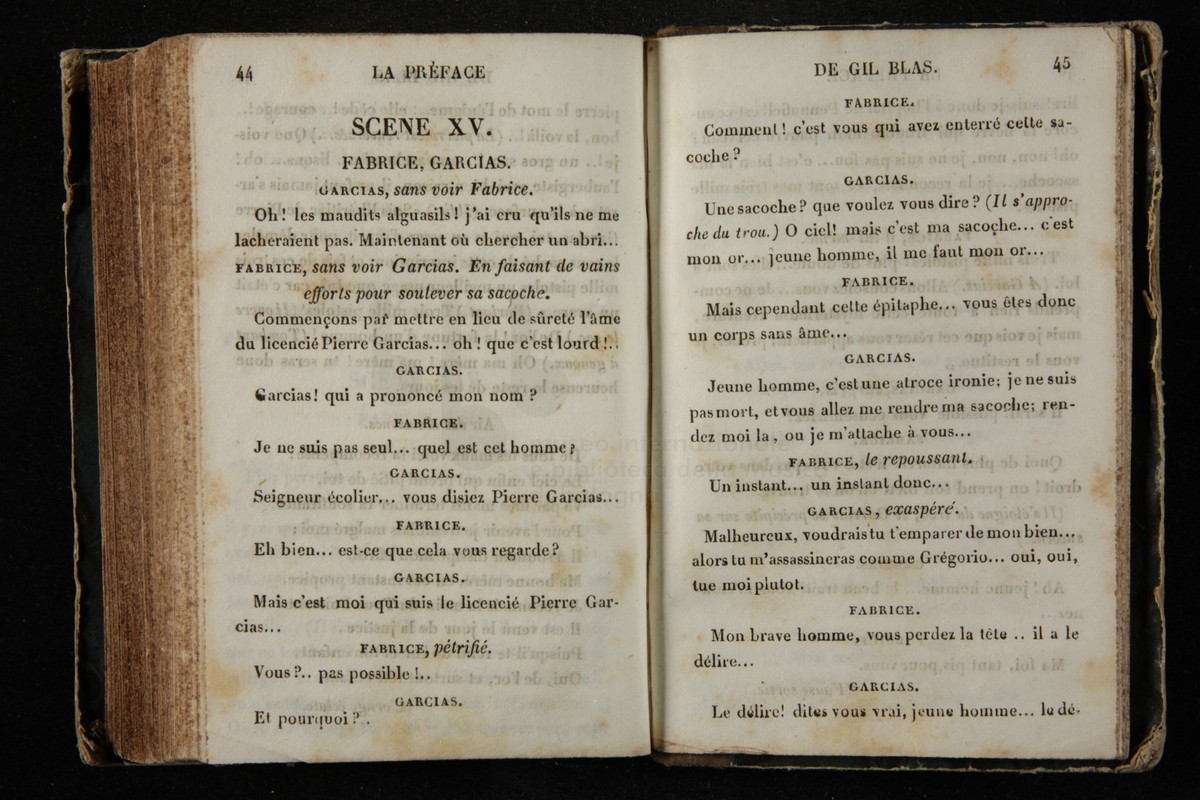 44
LA PRÉFACE
SCENE XV.
FABRICE, GARCIAS.
GARCIAS, sans voir Fabrice.
Oh! les maudits alguasils! j'ai cru qu'ils ne me
lacheraient pas. Maintenant où chercher un abri...
FABRICE, sans voir Garcias. En faisant de vains
efforts pour soulever sa sacoche.
Commençons par mettre en lieu de sûreté l'âme
du licencié Pierre Garcias... oh! que c'est lourd!..
GARCIAS.
Garcias! qui a prononcé mon nom?
FABRICE.
Je ne suis pas seul... quel est cet homme?
GARCIAS.
Seigneur écolier... vous disiez Pierre Garcias...
FABRICE.
Eh bien... est-ce que cela vous regarde?
GARCIAS.
Mais c'est moi qui suis le licencié Pierre Gar-
cias...
FABRICE, pétrifié.
Vous?.. pas possible!..
GARCIAS.
Et pourquoi?..
DE GIL BLAS.
45
FABRICE.
Comment! c'est vous qui avez enterré cette sa-
coche?
GARCIAS.
Une sacoche? que voulez vous dire? (Il s'appro-
che du trou.) O ciel! mais c'est ma sacoche... c'est
mon or... jeune homme, il me faut mon or...
FABRICE.
Mais cependant cette épitaphe... vous êtes donc
un corps sans âme...
GARCIAS.
Jeune homme, c'est une atroce ironie; je ne suis
pas mort, et vous allez me rendre ma sacoche; ren-
dez moi la, ou je m'attache à vous...
FABRICE, le repoussant.
Un instant... un instant donc...
GARCIAS, exaspéré.
Malheureux, voudrais tu t'emparer de mon bien...
alors tu m'assassineras comme Grégorio... oui, oui,
tue moi plutot.
FABRICE.
Mon brave homme, vous perdez la tête .. il a le
délire...
GARCIAS.
Le délire! dites vous vrai, jeune homme... le dé-